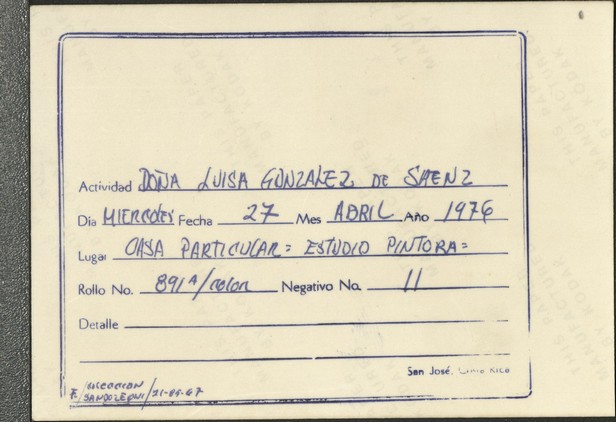 Actividad DOÑA LUISA GONZALEZ DE SAENZ
Día MIERCOLES Fecha 27 Mes ABRIL Año 1976
Lugar CASA PARTICULAR = ESTUDIO PINTORA =
Rollo No. 891 A/color Negativo No. 11
Detalle
San José, Costa Rica
F/